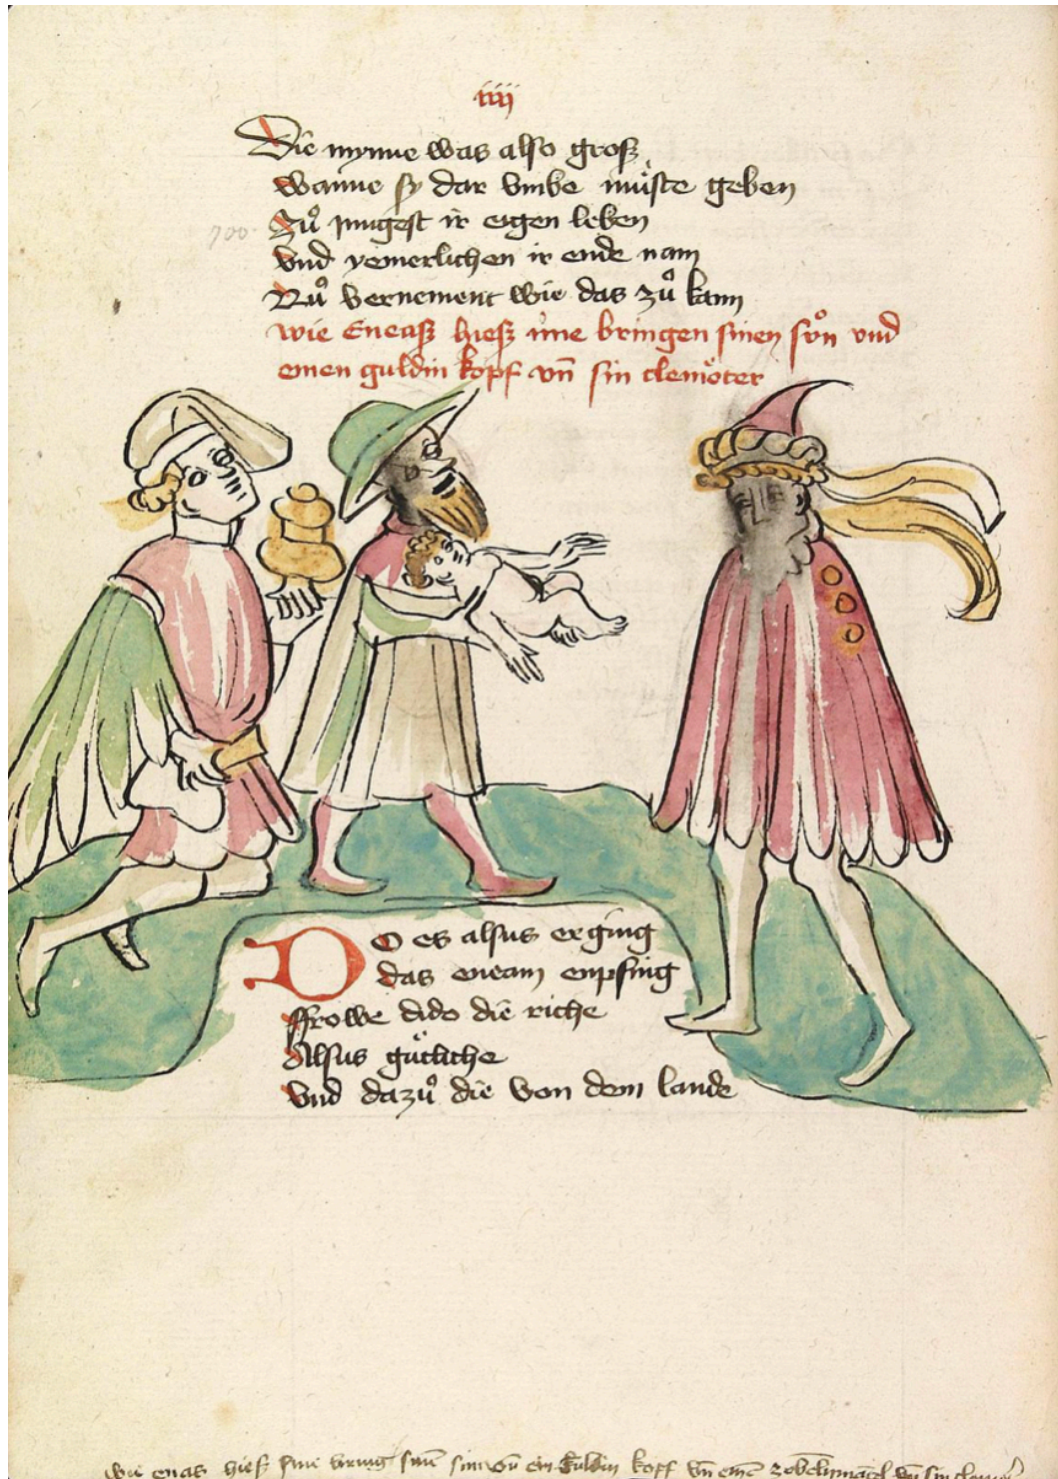 iiij
Die mynne was also groß
wanne sy dar vmbe müste geben
Zů jungest ir eigen leben
700.
Vnd yemerlichen ir ende nam
Nů vernement wie das zů kam
wie Eneas hieß ime bringen sinen sůn vnd
einen guldin kopf vñ sin cleinöter
DO es alsus erging
das eneam enpfing
ffrowe dido die riche
Alsus gütliche
Vnd dazů die von dem lande
wie eneas hieß sinen sun ein guldin kopf vñ einē